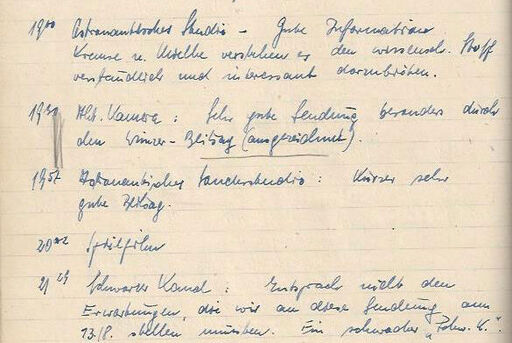 19⁰⁰ Astronautisches Studio – Gute Information
Krense u. Mielke verstehen es den wissensch. Stoff
verständlich und interessant darzubieten.
19³⁰ Akt. Kamera : Sehr gute Sendung besonders durch
den Winzer-Beitrag (ausgezeichnet).
19⁵⁷ Astronautisches Sonderstudio : Kurzer sehr
guter Beitrag.
20 Spielfilm
21²⁹ Schwarzer Kanal : Entsprach nicht den
Erwartungen, die wir an diese Sendung am
13.8. stellen mussten. Ein schwacher „Schw. K.".